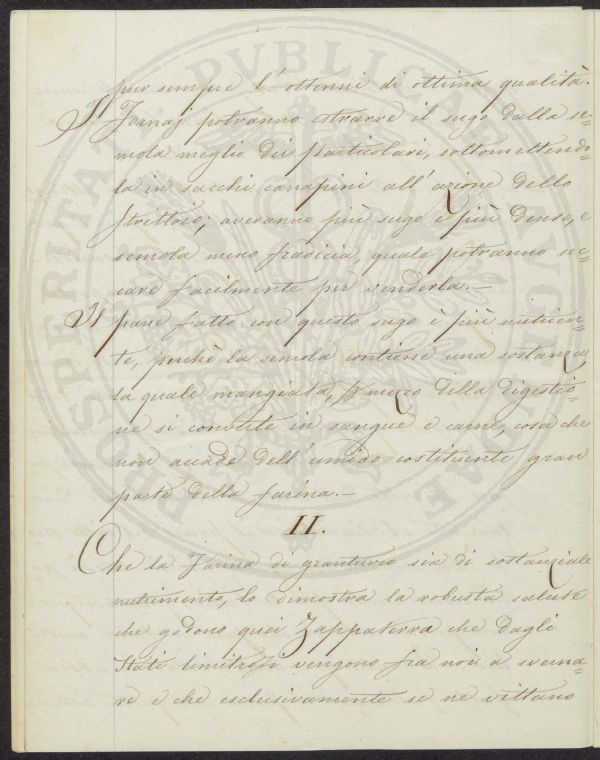 pur sempre l'ottenni di ottima qualità.
I Fornaj potranno estrarre il sugo dalla se=
mola meglio dei particolari, sottomettendo=
la in sacchi canapini all'azione dello
strettoio; averanno più sugo e più denso, e
semola meno fradicia, quale potranno sec=
care facilmente per venderla.—
Il pane fatto con questo sugo è più nutrien=
te, perchè la semola contiene una sostanza
la quale mangiata, mezzo della digestio=
ne si converte in sangue e carne, cosa che
non accade dell'umido costituente gran
parte della farina.—
II.
Che la Farina di granturco sia di sostanziale
nutrimento, lo dimostra la robusta salute
che godono quei Zappaterra che dagli
Stati limitrofi vengono fra noi a sverna=
re e che esclusivamente se ne vittano
PROSPERITATI PVBLICAE AVGENDAE